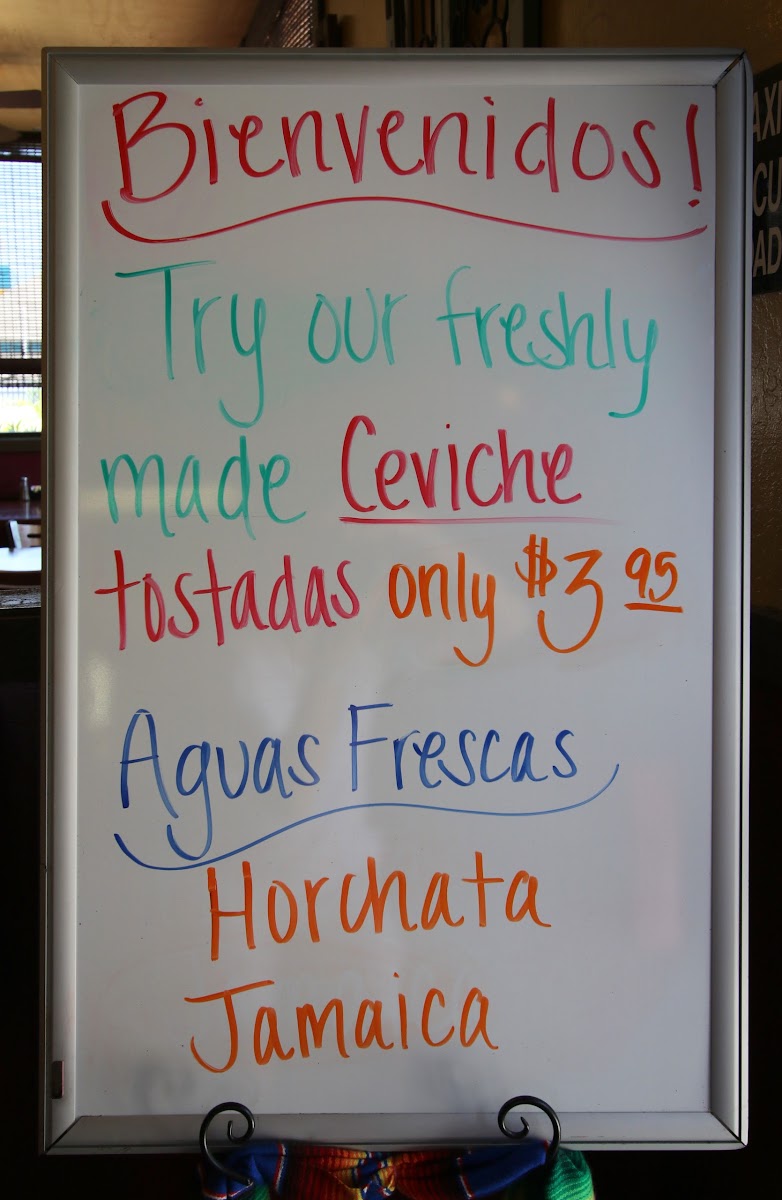 Bienvenidos!
Try our freshly
made Ceviche
tostadas only $3.95
Aguas Frescas
Horchata
Jamaica